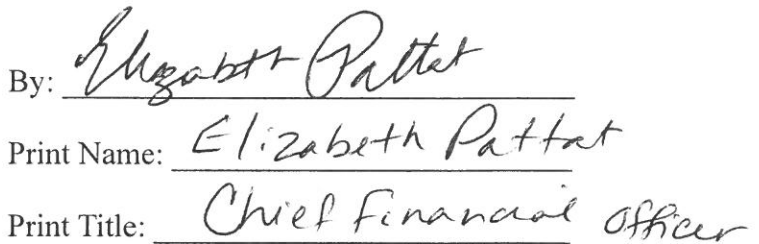 By: Elizabeth Pattat
Print Name: Elizabeth Pattat
Print Title: Chief Financial Officer